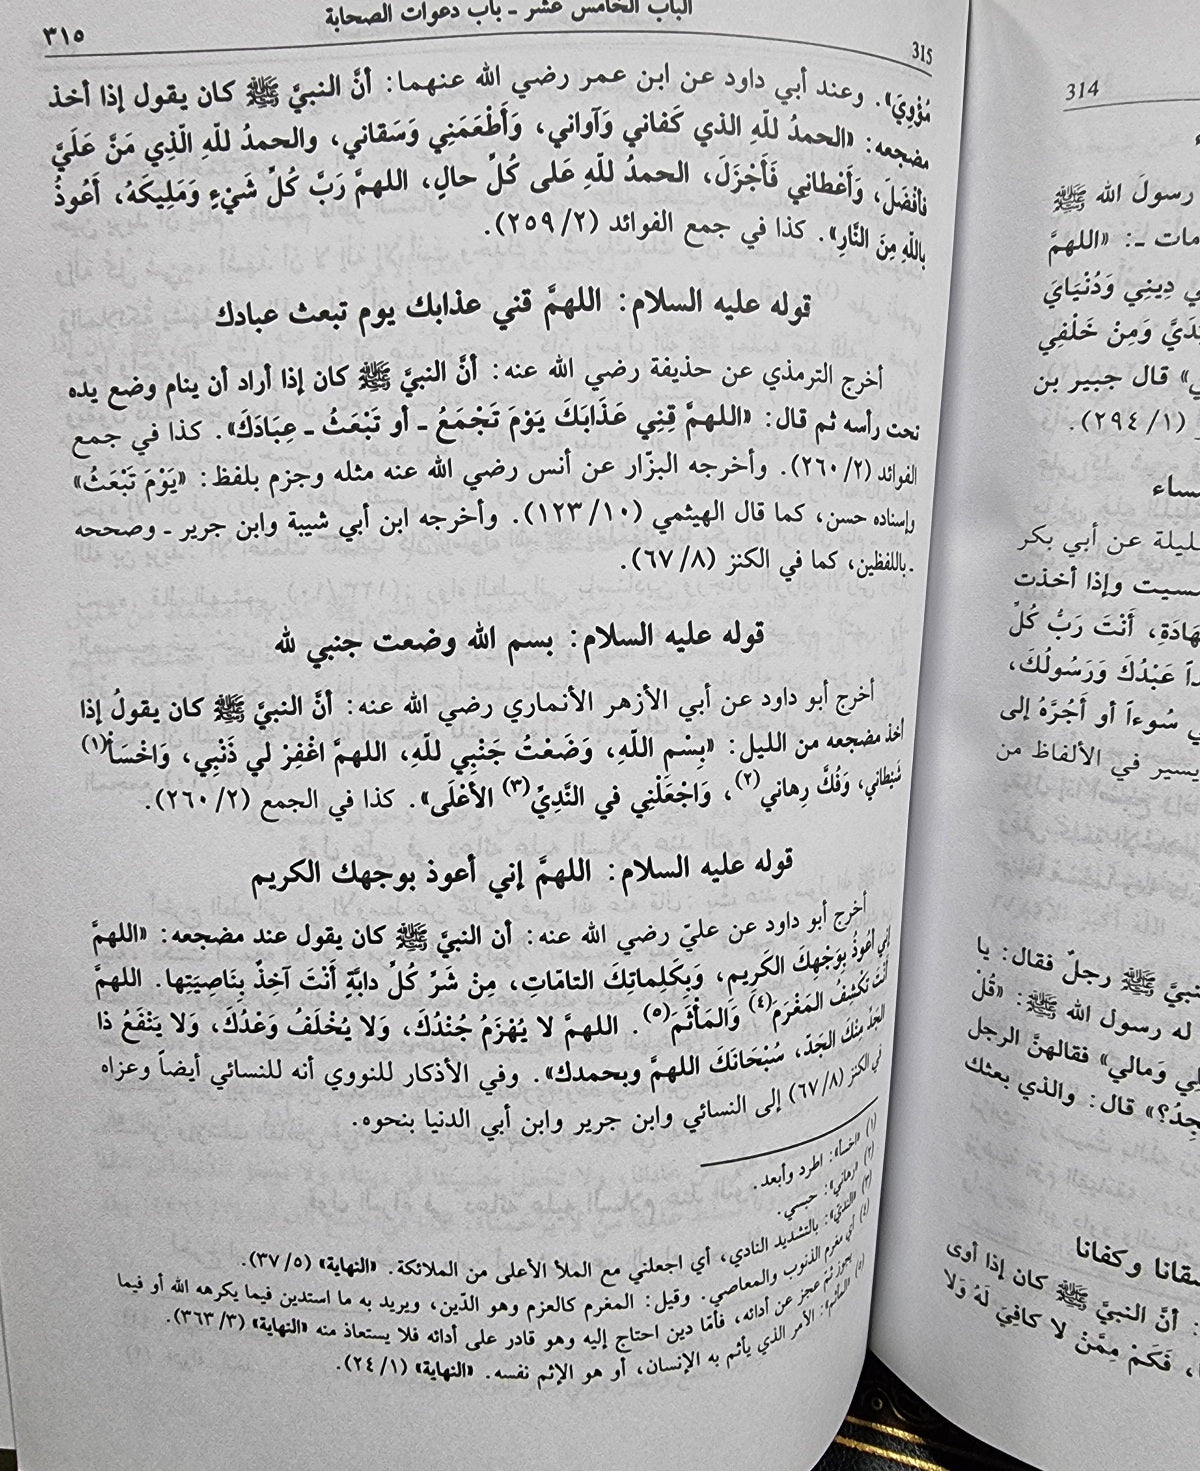 الباب الخامس عشر ـ باب دعوات الصحابة
٣١٥
315
مُؤْوِيَ». وعند أبي داود عن ابن عمر رضي الله عنهما: أنَّ النبيَّ ﷺ كان يقول إذا أخذ
مضجعه: «الحمدُ للّهِ الذي كَفاني وَآواني، وَأَطْعَمَنِي وَسَقاني، والحمدُ للّهِ الّذِي مَنَّ عَلَيَّ
فأفْضَلَ، وَأَعْطاني فَأَجْزَلَ، الحمدُ للّهِ عَلى كُلِّ حالٍ، اللهمَّ رَبَّ كُلِّ شَيْءٍ وَمَلِيكَهُ، أَعُوذُ
باللّهِ مِنَ النَّارِ». كذا في جمع الفوائد (٢/ ٢٥٩).
قوله عليه السلام: اللهمَّ قني عذابك يوم تبعث عبادك
أخرج الترمذي عن حذيفة رضي الله عنه: أنَّ النبيَّ ﷺ كان إذا أراد أن ينام وضع يده
تحت رأسه ثم قال: «اللهمَّ قِنِي عَذَابَكَ يَوْمَ تَجْمَعُ ـ أو تَبْعَثُ ـ عِبَادَكَ». كذا في جمع
الفوائد (٢/ ٢٦٠). وأخرجه البزّار عن أنس رضي الله عنه مثله وجزم بلفظ: «يَوْمَ تَبْعَثُ»
وإسناده حسن، كما قال الهيثمي (١٠/ ١٢٣). وأخرجه ابن أبي شيبة وابن جرير ـ وصححه
ـ باللفظين، كما في الكنز (٨/ ٦٧).
قوله عليه السلام: بسم الله وضعت جنبي لله
أخرج أبو داود عن أبي الأزهر الأنماري رضي الله عنه: أنَّ النبيَّ ﷺ كان يقولُ إذا
أخذ مضجعه من الليل: «بِسْمِ اللّهِ، وَضَعْتُ جَنْبِي للّهِ، اللهمَّ اغْفِرْ لي ذَنْبِي، وَاخْسَأْ(١)
شَيْطاني، وَفُكَّ رِهاني(٢)، وَاجْعَلْنِي في النَّدِيِّ(٣) الأعْلَى». كذا في الجمع (٢/ ٢٦٠).
قوله عليه السلام: اللهمَّ إني أعوذ بوجهك الكريم
أخرج أبو داود عن عليّ رضي الله عنه: أن النبيَّ ﷺ كان يقول عند مضجعه: «اللهمَّ
إني أعُوذُ بِوَجْهِكَ الكَرِيمِ، وَبِكَلِماتِكَ التامّاتِ، مِنْ شَرِّ كُلِّ دابَّةٍ أَنْتَ آخِذٌ بِنَاصِيَتِها. اللهمَّ
أَنْتَ تَكْشِفُ المَغْرَمَ(٤) وَالمَأْثَمَ(٥). اللهمَّ لا يُهْزَمُ جُنْدُكَ، وَلا يُخْلَفُ وَعْدُكَ، وَلا يَنْفَعُ ذا
الجَدِّ مِنْكَ الجَدّ، سُبْحَانَكَ اللهمَّ وبحمدك». وفي الأذكار للنووي أنه للنسائي أيضاً وعزاه
في الكنز (٨/ ٦٧) إلى النسائي وابن جرير وابن أبي الدنيا بنحوه.
(١) «اخسأ»: اطرد وأبعد.
(٢) «رهاني»: حبسي.
(٣) «النديّ»: بالتشديد النادي، أي اجعلني مع الملأ الأعلى من الملائكة. «النهاية» (٥/ ٣٧).
(٤) أي مغرم الذنوب والمعاصي. وقيل: المغرم كالغرم وهو الدّين، ويريد به ما استدين فيما يكرهه الله أو فيما
يجوز ثم عجز عن أدائه، فأمّا دين احتاج إليه وهو قادر على أدائه فلا يستعاذ منه «النهاية» (٣/ ٣٦٣).
(٥) «المأثم»: الأمر الذي يأثم به الإنسان، أو هو الإثم نفسه. «النهاية» (١/ ٢٤).
314
رسولَ الله ﷺ
ـ: «اللهمَّ
دِينِي وَدُنْيَايَ
وَمِنْ خَلْفِي
قال جبير بن
(١/ ٢٩٤).
عن أبي بكر
وإذا أخذت
أَنْتَ رَبُّ كُلِّ
عَبْدُكَ وَرَسُولُكَ،
سُوءاً أو أَجُرَّهُ إلى
يسير في الألفاظ من
ﷺ رجلٌ فقال: يا
له رسول الله ﷺ: «قُلْ
وَمالي» فقالهنَّ الرجل
قال: والذي بعثك
وكفانا
: أنَّ النبيَّ ﷺ كان إذا أوى
، فَكَمْ مِمَّنْ لا كافِيَ لَهُ وَلا